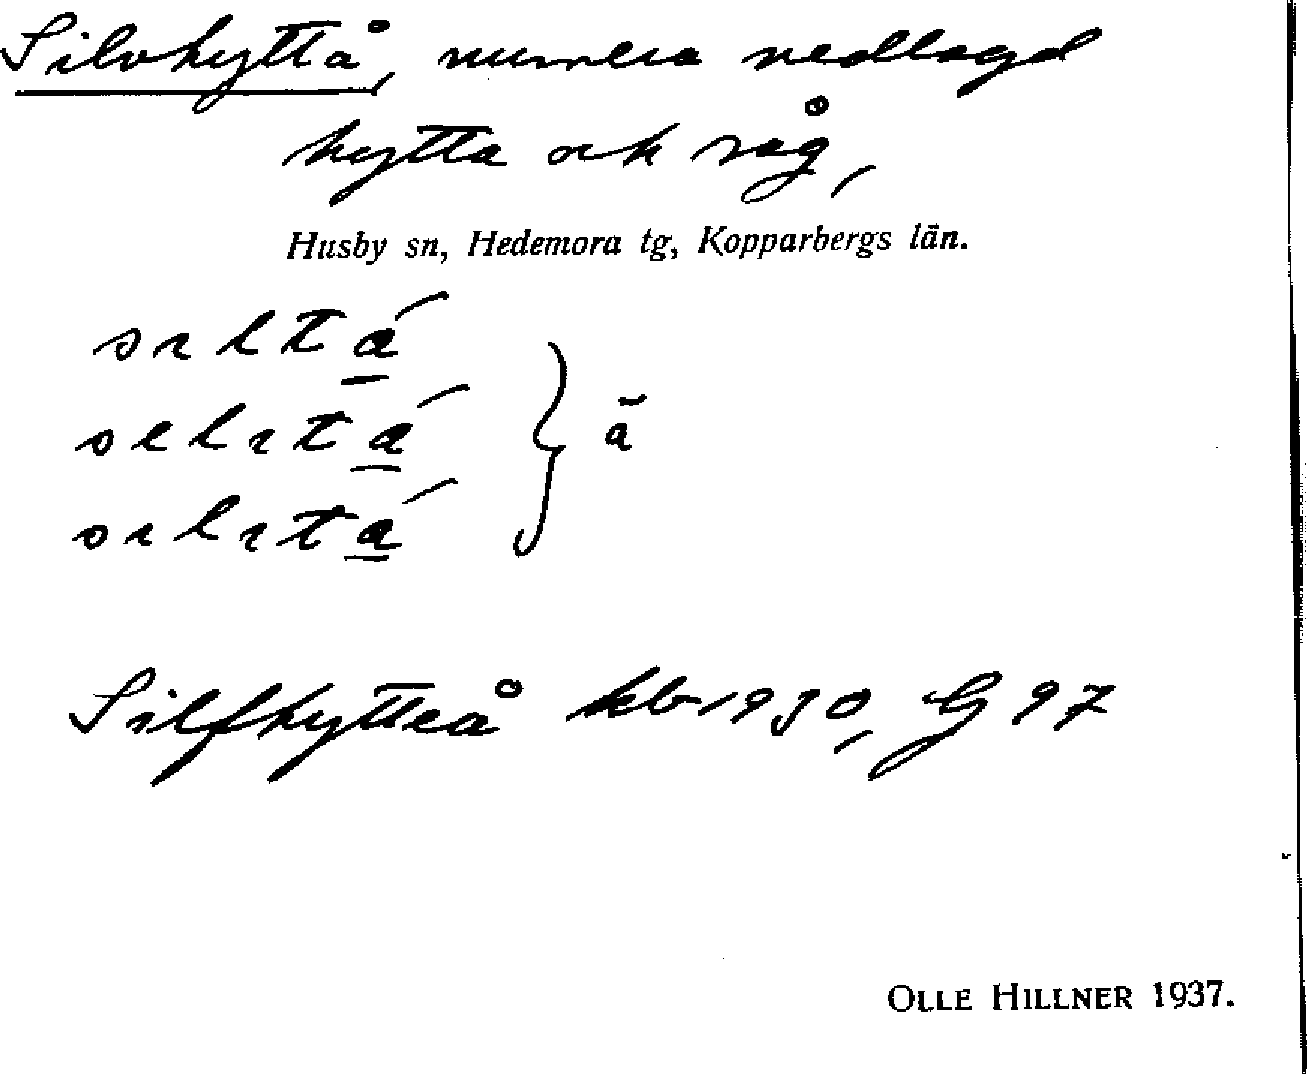 Silvhyttå, numera nedlagd
hytta och såg,
Husby sn, Hedemora tg, Kopparbergs län.
Silfhytteå kb 1930, G 97
OLLE HILLNER 1937.